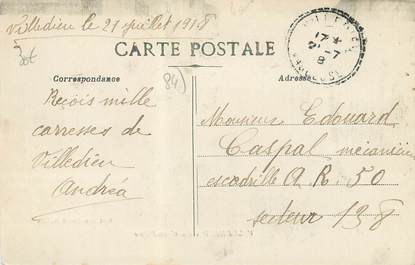 Villedieu le 21 juillet 1918
CARTE POSTALE
Correspondance
Adresse
VILLEDIEU
17 *
21 -7
8
VAUCLUSE
20f
(84)
Reçois mille
carresses de
Villedieu
Andréa
Monsieur Edouard
Caspal mécanicien
escadrille A.R. 50
secteur 138